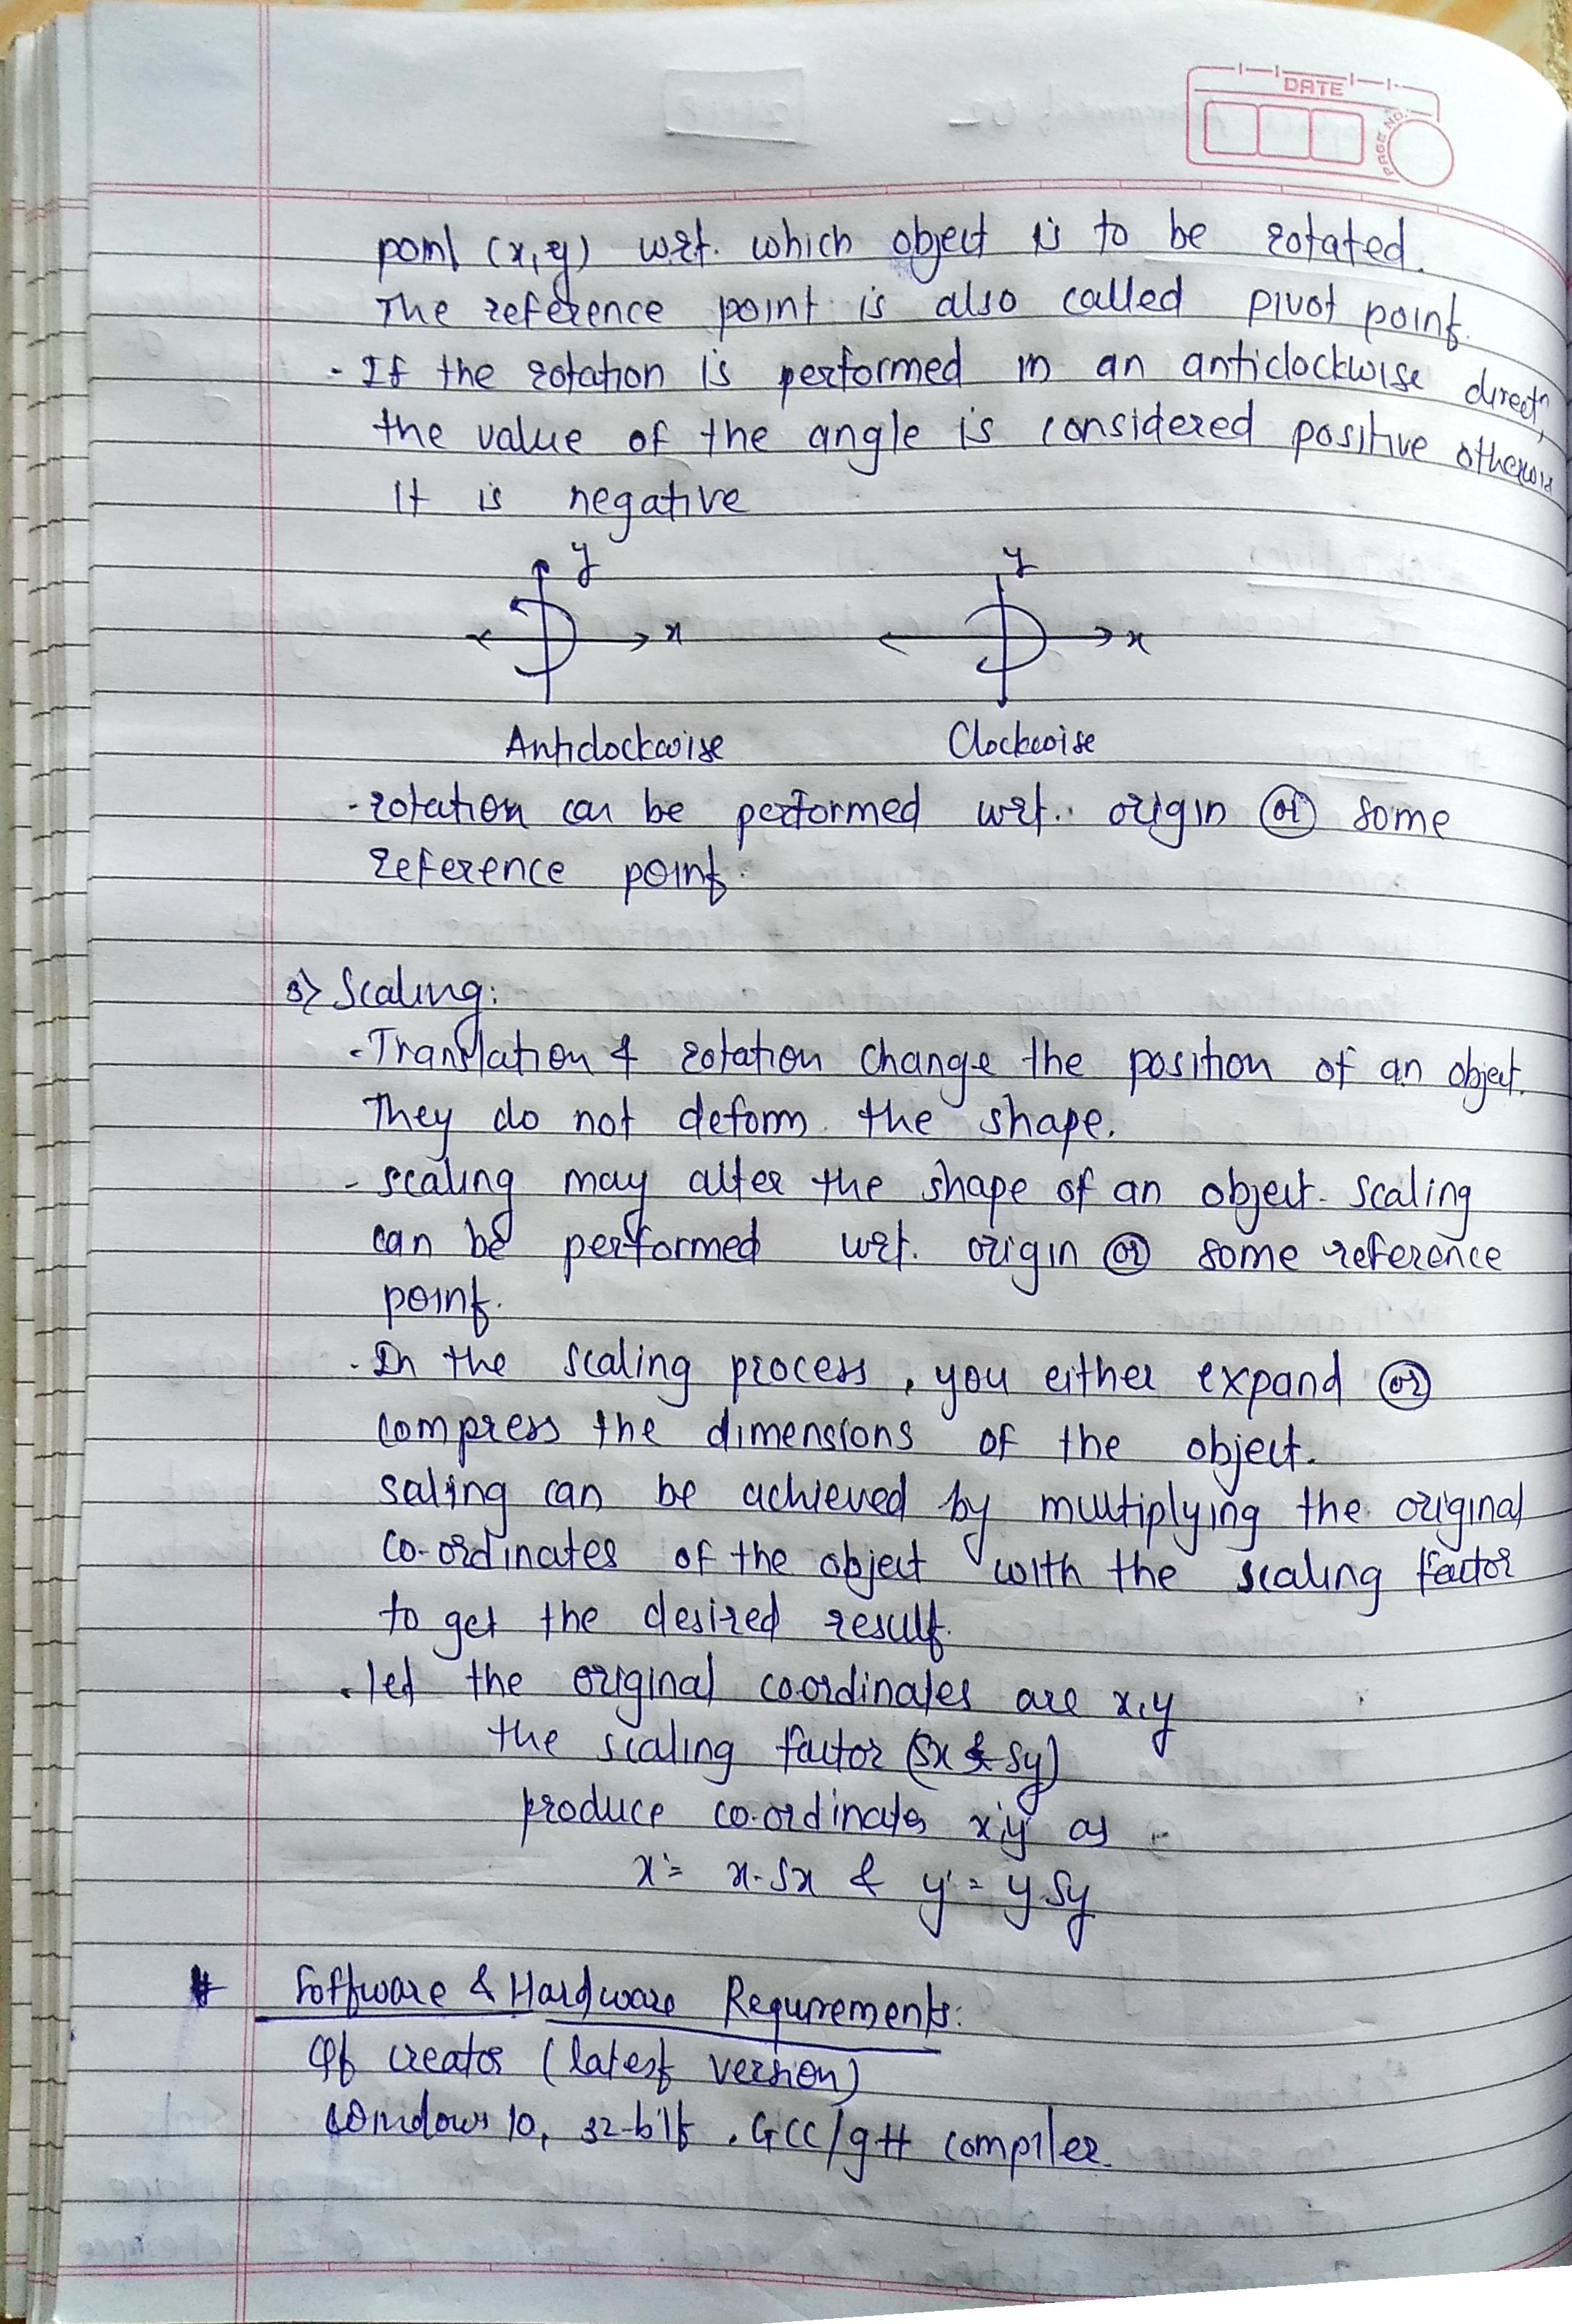 DATE
PAGE NO.
point (x,y) w.r.t. which object is to be rotated.
The reference point is also called pivot point.
- If the rotation is performed in an anticlockwise directn,
the value of the angle is considered positive otherwise
it is negative
y y
x x
Anticlockwise Clockwise
- rotation can be performed w.r.t. origin or some
reference point.
3> Scaling:
- Translation & rotation change the position of an object.
They do not deform the shape.
- scaling may alter the shape of an object. scaling
can be performed w.r.t. origin or some reference
point.
- In the scaling process, you either expand or
compress the dimensions of the object.
saling can be achieved by multiplying the original
co-ordinates of the object with the scaling factor
to get the desired result.
. let the original coordinates are x,y
the scaling factor (Sx & Sy)
produce co-ordinates x'y' as
x' = x.Sx & y' = y.Sy
# Software & Hardware Requirements:
Qt creator (latest version)
Windows 10, 32-bit, GCC/g++ compiler.